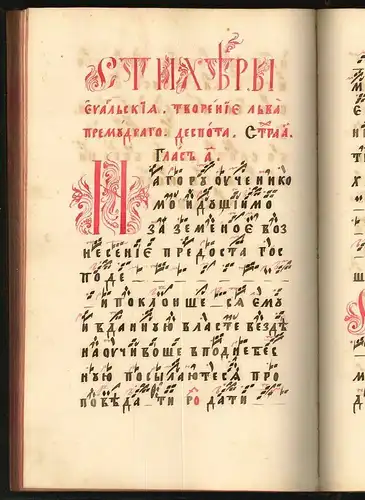 СТИХѢРЫ
ЕѴАⷢ҇ЛЬСКІѦ. ТВОРЕНІЕ ЛЬВА
ПРЕМУДРАГО. ДЕСПОТА.
ГЛАСЪ А҃.
НА ГОРУ ОУЧЕНИКО
МО ИДУЩИМО
ЗА ЗЕМЕНОЕ ВОЗ
НЕСЕНІЕ ПРЕДОСТА ГОС
ПОДЕ
И ПОКЛОНШЕ СѦ ЕМУ
И ВДАННУЮ ВЛАСТЕ ВЕЗДѢ
НАОУЧИВОШЕ В ПОДНЕБЕС
НУЮ ПОСЫЛАЮТЕСѦ ПРО
ПОВѢДА ТИ